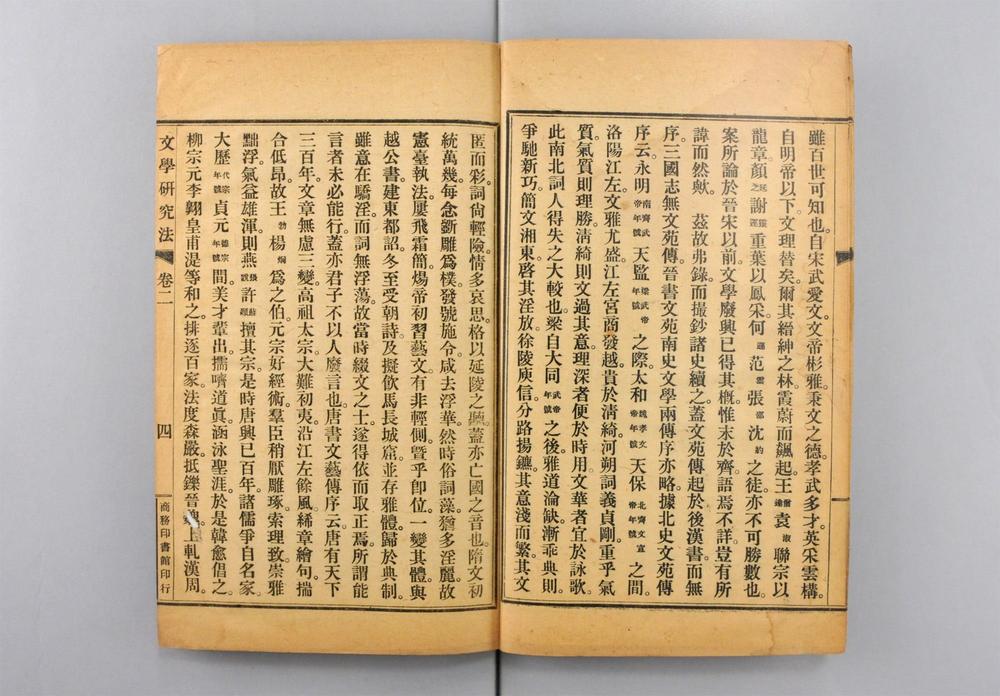 雖百世可知也。自宋武愛文。文帝彬雅。秉文之德。孝武多才。英采雲構。
自明帝以下。文理替矣。爾其縉紳之林。霞蔚而飆起。王袁淑聯宗以
龍章。顏延之謝靈運重葉以鳳采。何遜范雲張邵沈約之徒。亦不可勝數也。
案所論於晉宋以前文學廢興。已得其概。惟末於齊。語焉不詳。豈有所
諱而然歟。茲故弗錄。而撮鈔諸史續之。蓋文苑傳起於後漢書。而無
序。三國志無文苑傳。晉書文苑南史文學兩傳序。亦略據北史文苑傳
序云。永明南齊武帝年號天監梁武帝年號之際。太和魏孝文帝年號天保北齊文宣帝年號之間。
洛陽江左。文雅尤盛。江左宮商發越。貴於淸綺。河朔詞義貞剛。重乎氣
質。氣質則理勝。淸綺則文過其意。理深者便於時用。文華者宜於詠歌。
此南北詞人得失之大較也。梁自大同武帝年號之後。雅道淪缺。漸乖典則。
爭馳新巧。簡文湘東。啓其淫放。徐陵庾信。分路揚鑣。其意淺而繁。其文
匿而彩。詞尙輕險。情多哀思。格以延陵之聽。蓋亦亡國之音也。隋文初
統萬幾。每念斵雕爲樸。發號施令。咸去浮華。然時俗詞藻。猶多淫麗。故
憲臺執法。屢飛霜簡。煬帝初習藝文。有非輕側。曁乎卽位。一變其體。與
越公書。建東都詔。冬至受朝詩。及擬飮馬長城窟。並存雅體。歸於典制。
雖意在驕淫。而詞無浮蕩。故當時綴文之士。遂得依而取正焉。所謂能
言者未必能行。蓋亦君子不以人廢言也。唐書文藝傳序云。唐有天下
三百年。文章無慮三變。高祖太宗。大難初夷。沿江左餘風。絺章繪句。揣
合低昂。故王勃楊炯爲之伯。元宗好經術。羣臣稍厭雕琢。索理致。崇雅
黜浮。氣益雄渾。則燕張說許蘇頲擅其宗。是時唐興已百年。諸儒爭自名家。
大歷代宗年號貞元德宗年號間。美才輩出。擩嚌道眞。涵泳聖涯。於是韓愈倡之。
柳宗元李翶皇甫湜等和之。排逐百家。法度森嚴。抵轢晉上軋漢周。
文學硏究法
卷二
四
商務印書館印行